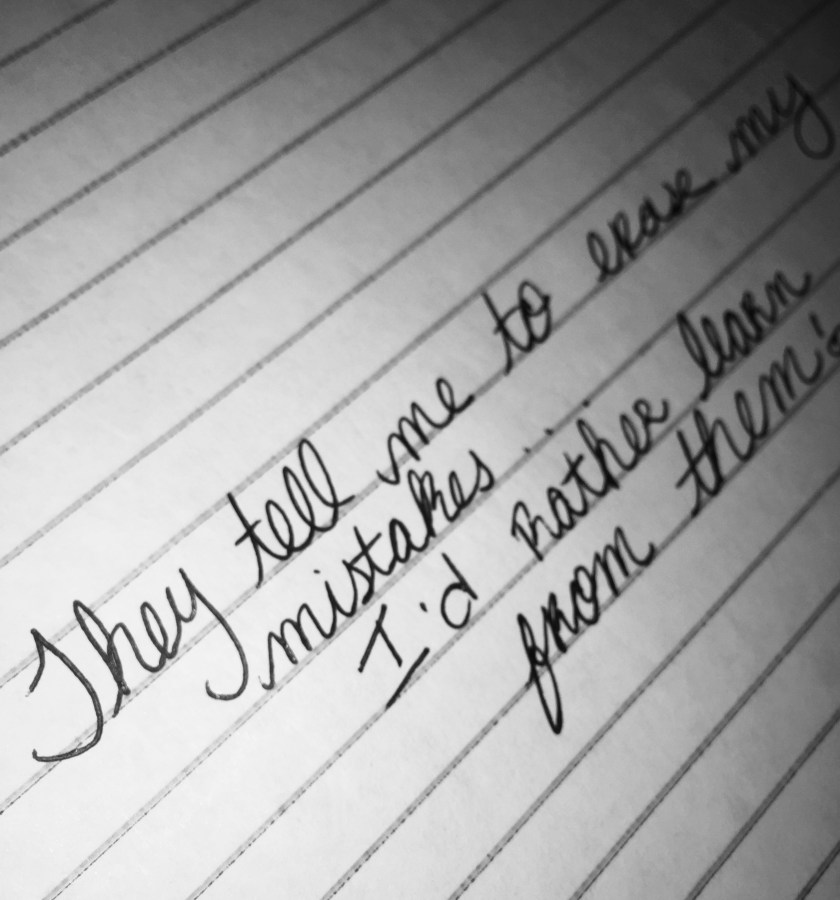 They tell me to erase my
mistakes...
I'd rather learn
from them!